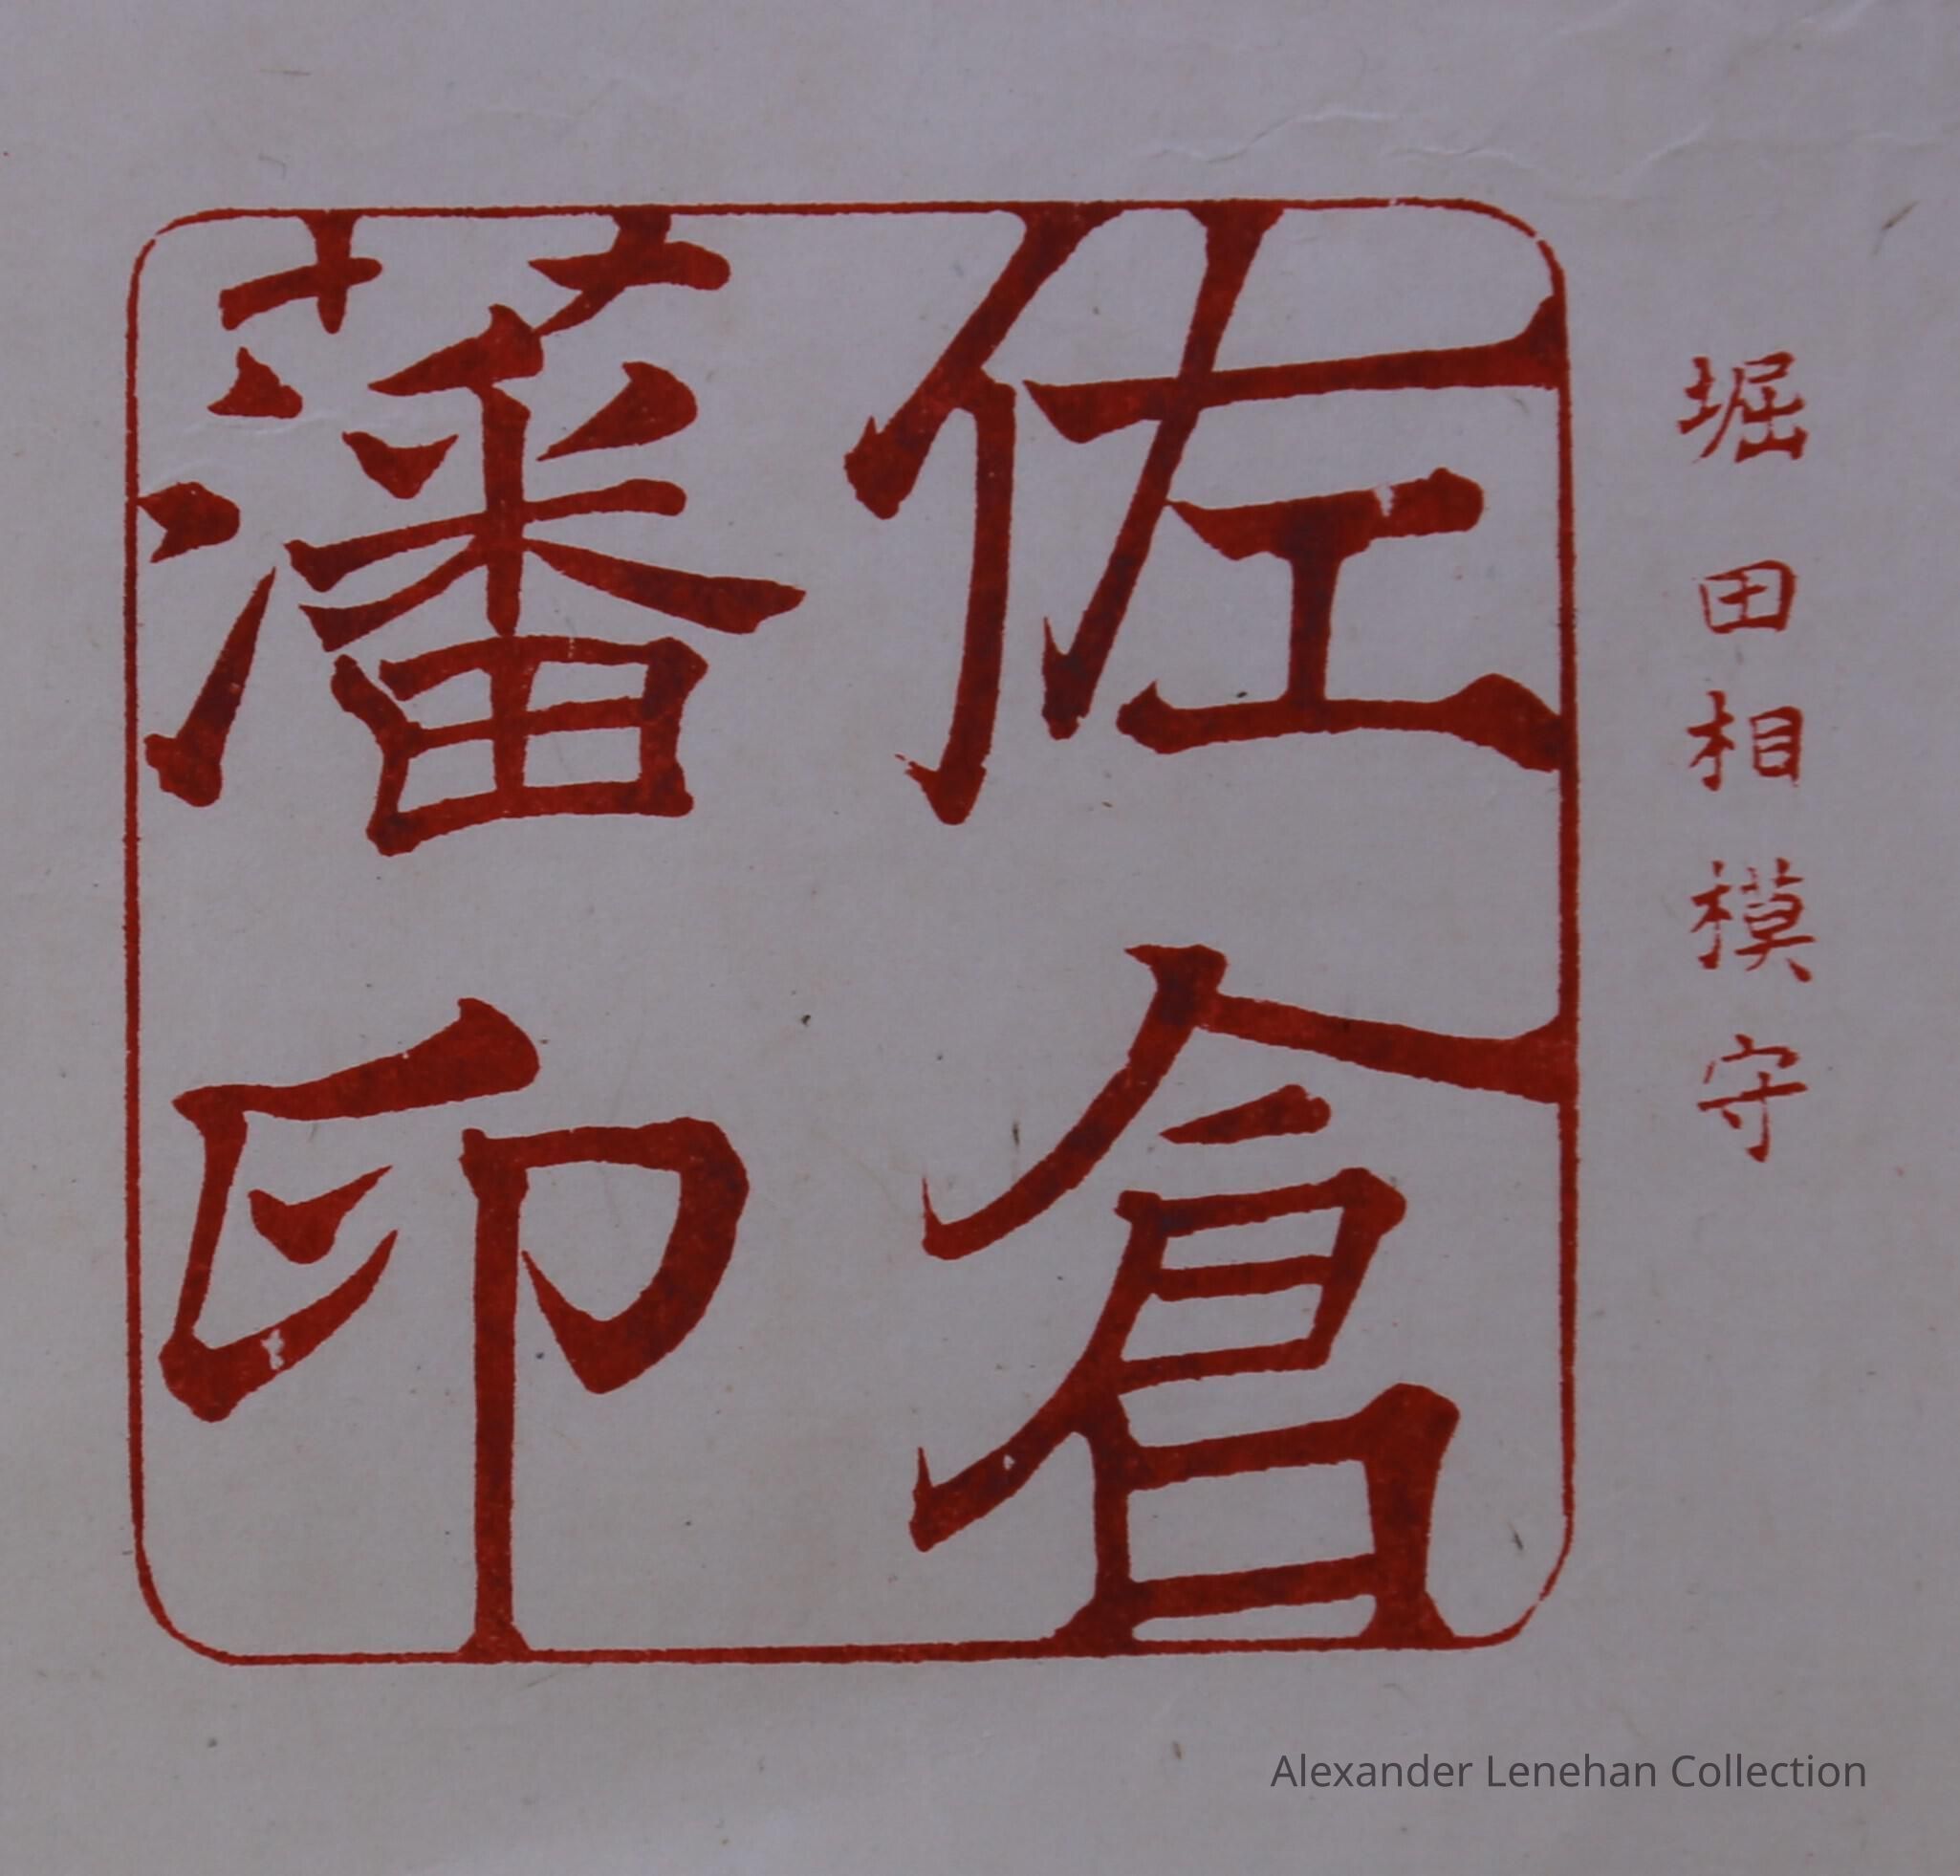 堀田相模守
佐倉
藩印
Alexander Lenehan Collection